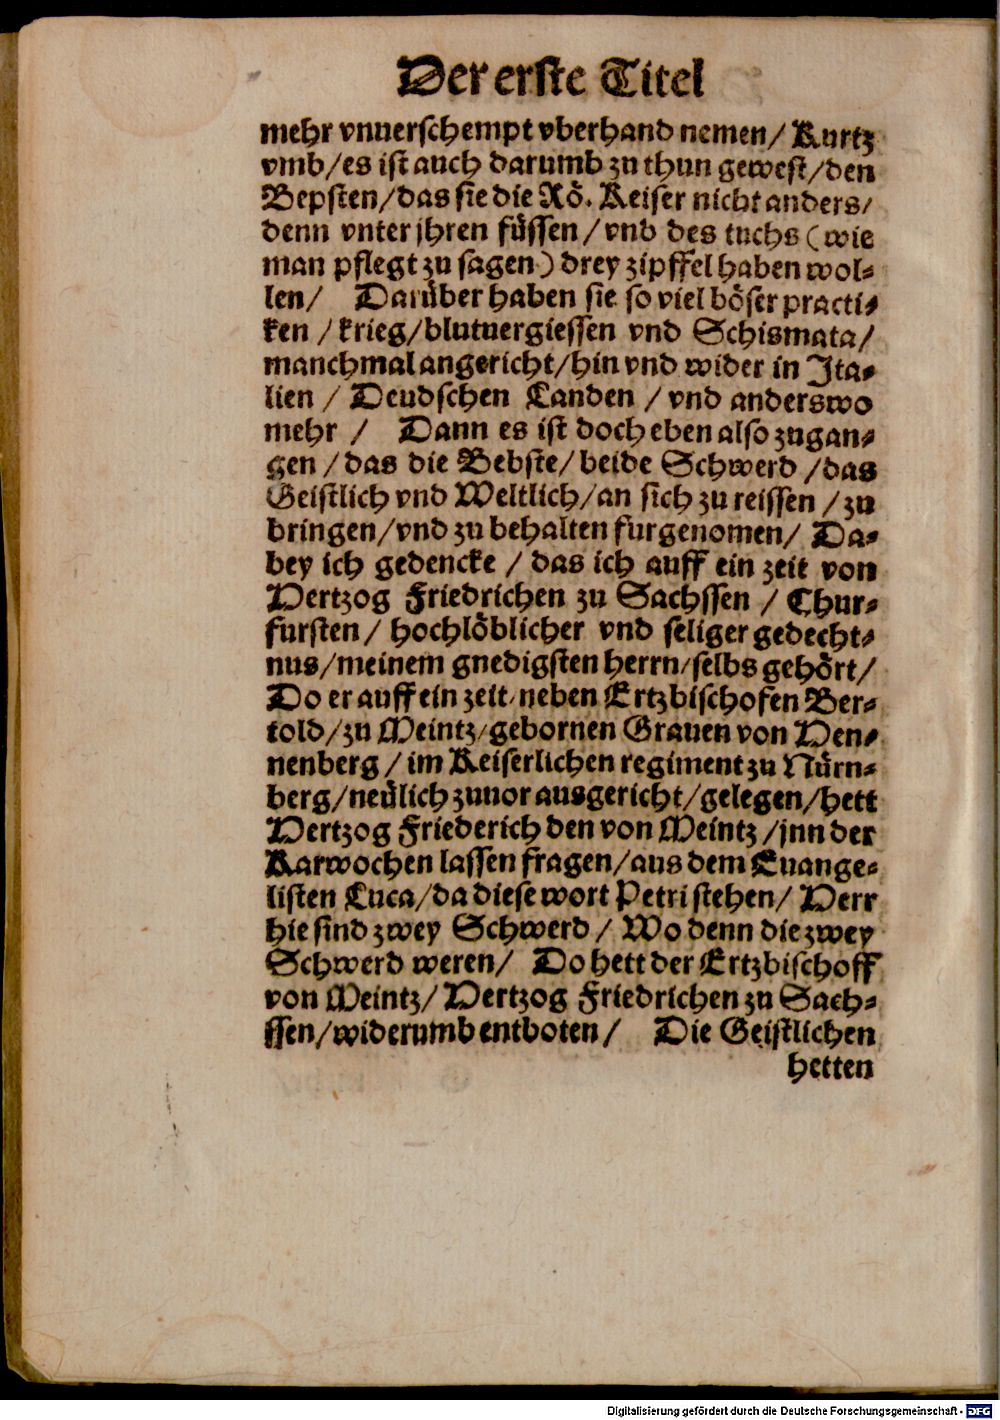 Der erste Titel
mehr vnuerschempt vberhand nemen/ Kurtz
vmb/es ist auch darumb zu thun gewest/den
Bepsten/das sie die Rö. Keiser nicht anders/
denn vnter jhren füssen/vnd des tuchs (wie
man pflegt zu sagen) drey zipffel haben wol⸗
len/ Darüber haben sie so viel böser practi⸗
ken /krieg/blutuergiessen vnd Schismata/
manchmal angericht/hin vnd wider in Ita⸗
lien / Deudschen Landen / vnd anderswo
mehr / Dann es ist doch eben also zugan⸗
gen /das die Bebste/ beide Schwerd /das
Geistlich vnd Weltlich/an sich zu reissen /zu
bringen/vnd zu behalten furgenomen/ Da⸗
bey ich gedencke / das ich auff ein zeit von
Hertzog Friedrichen zu Sachssen / Chur⸗
fursten/ hochlöblicher vnd seliger gedecht⸗
nus/meinem gnedigsten herrn/selbs gehört/
Do er auff ein zeit/neben Ertzbischofen Ber⸗
told/zu Meintz/gebornen Grauen von Hen⸗
nenberg /im Keiserlichen regiment zu Nürn⸗
berg/neülich zuuor ausgericht/gelegen/hett
Hertzog Friederich den von Meintz /jnn der
Karwochen lassen fragen/aus dem Euange⸗
listen Luca/da diese wort Petri stehen/ Herr
hie sind zwey Schwerd / Wo denn die zwey
Schwerd weren/ Do hett der Ertzbischoff
von Meintz/ Hertzog Friedrichen zu Sach⸗
ssen/widerumb entboten/ Die Geistlichen
hetten
Digitalisierung gefördert durch die Deutsche Forschungsgemeinschaft - DFG